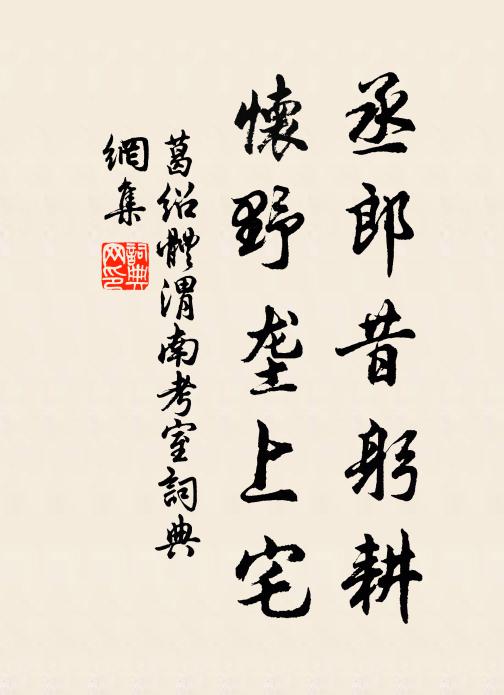 丞郎昔躬耕
懷野垄上宅
葛绍體渭南考室詞典
網集
詞典
网印